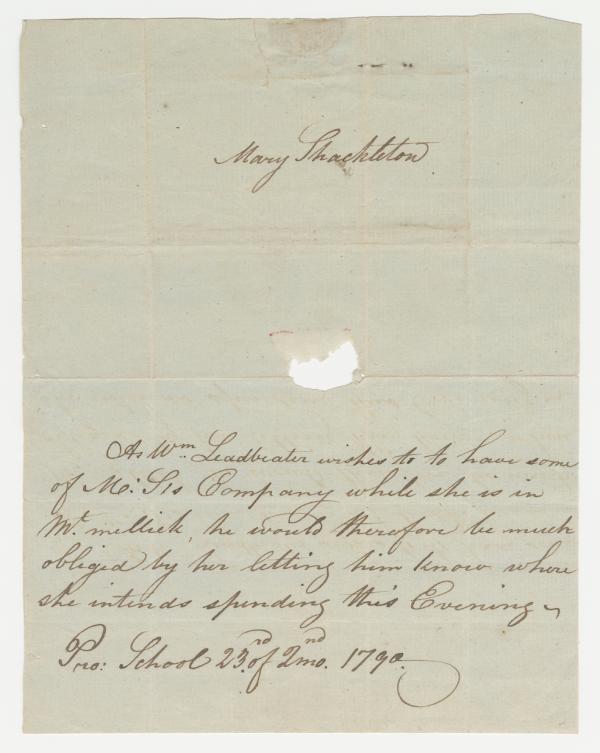 Mary Shackleton
As Wm. Leadbeater wishes to to have some
of M: S's Company while she is in
Mt. mellick, he would therefore be much
obliged by her letting him know where
she intends spending this Evening ~
Pro: School 23rd. of 2nd mo. 1790.